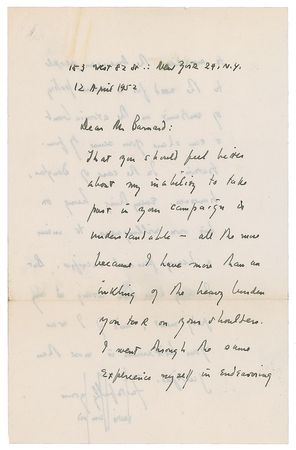 153 West 82 St. : New York 24, N.Y.
12 April 1952
Dear Mr Barnard:
That you should feel bitter
about my inability to take
part in your campaign is
understandable — all the more
because I have more than an
inkling of the heavy burden
you took on your shoulders.
I went through the same
experience myself in endeavoring